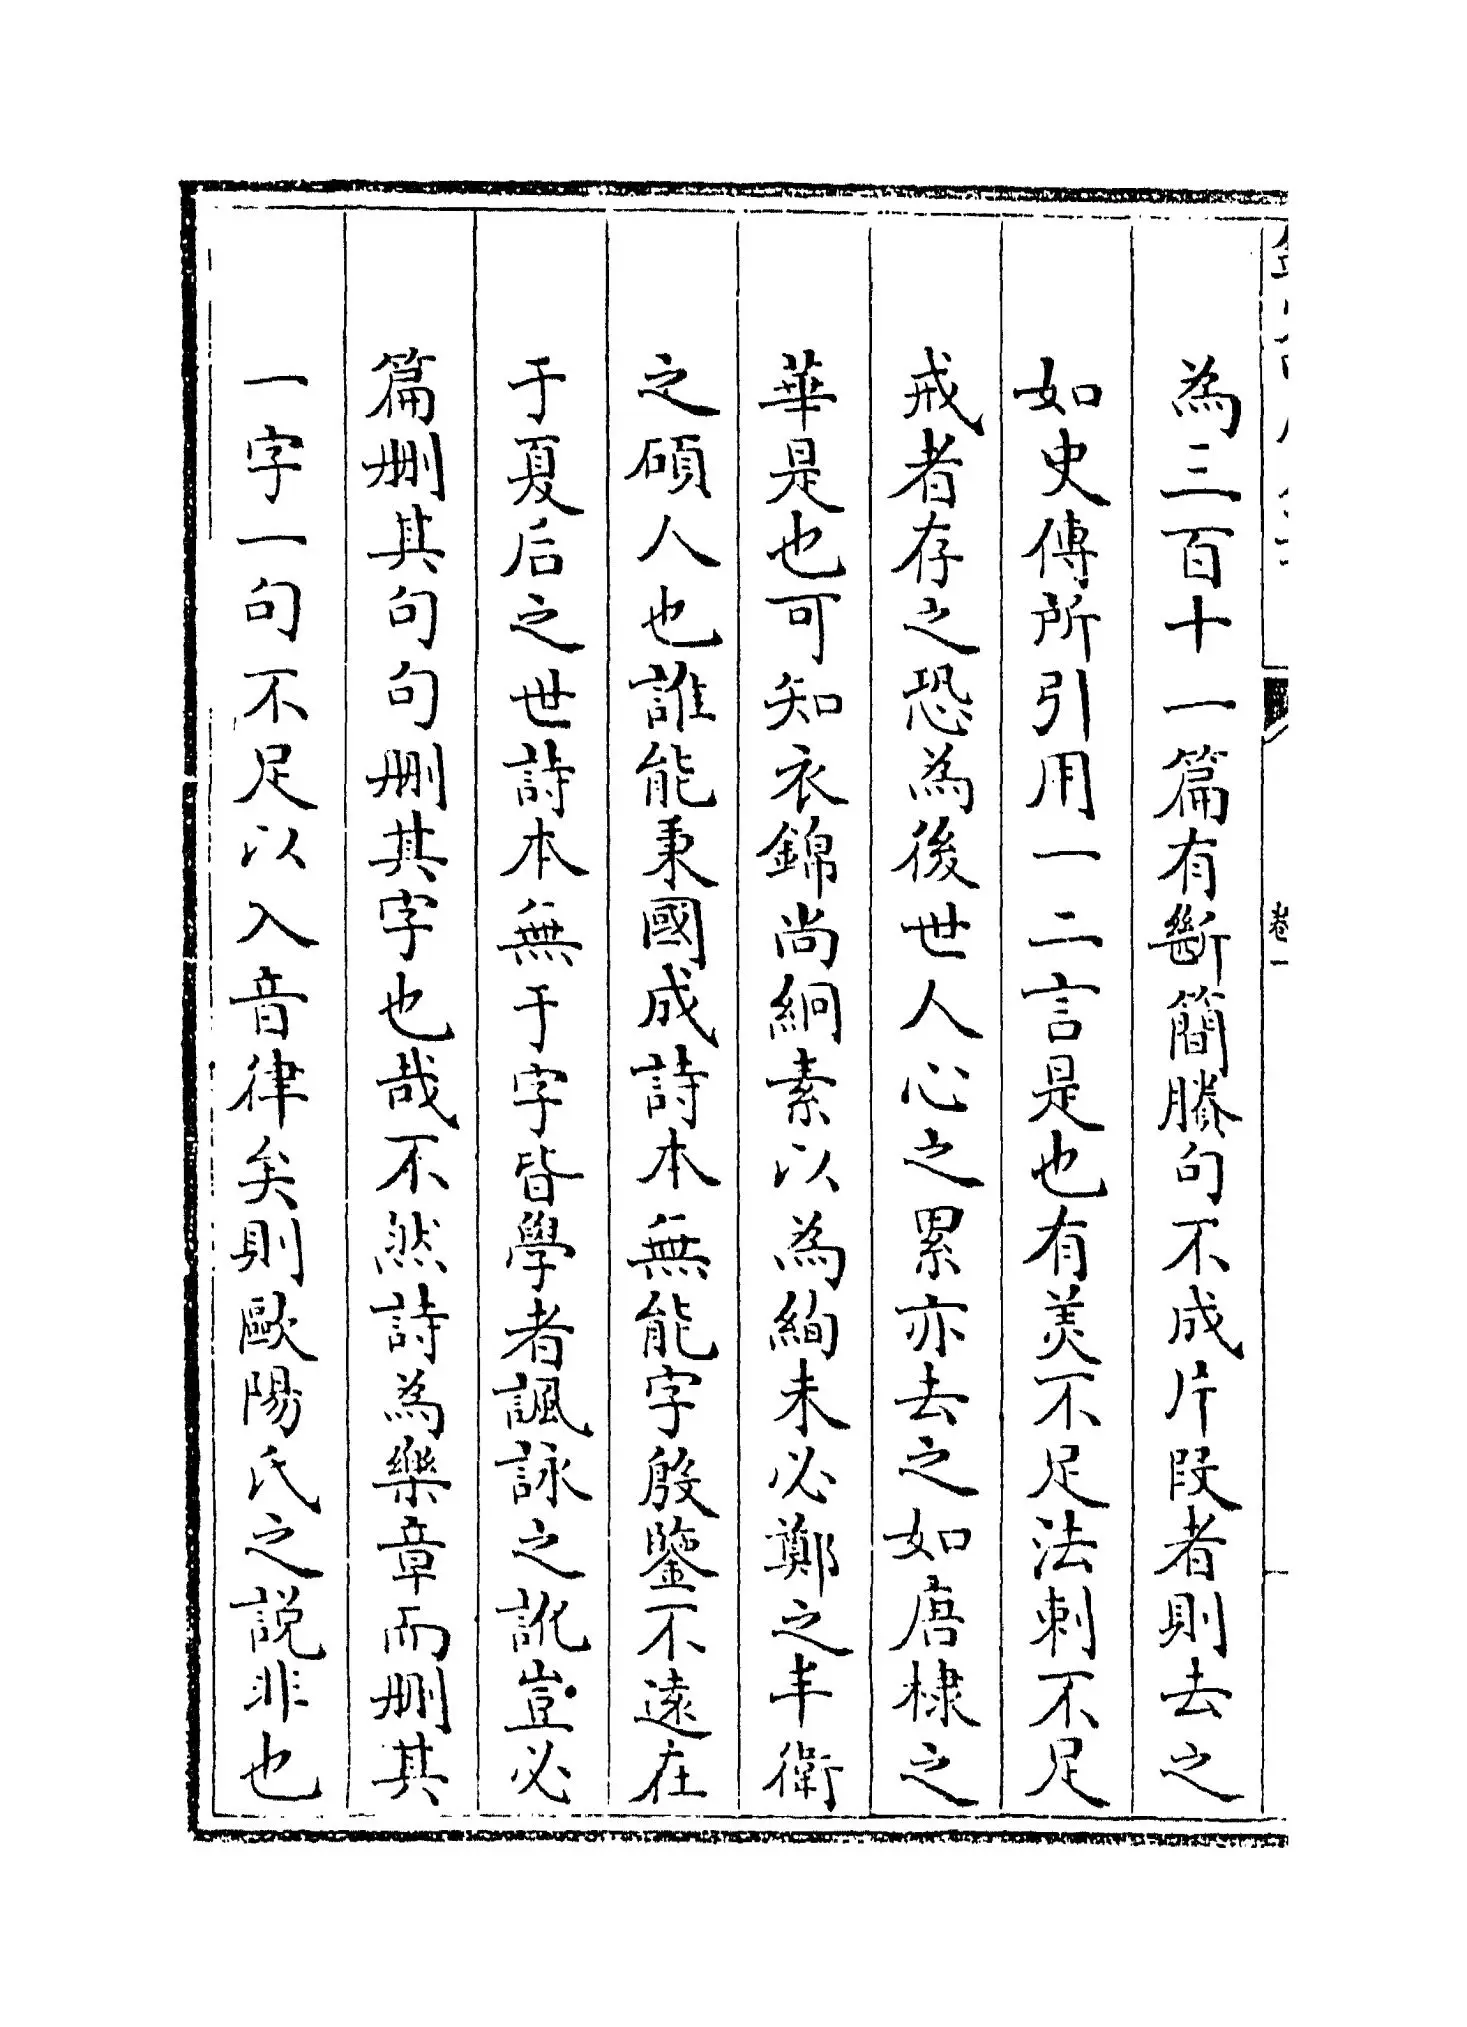 卷一
為三百十一篇有斷簡賸句不成片段者則去之
如史傳所引用一二言是也有美不足法刺不足
戒者存之恐為後世人心之累亦去之如唐棣之
華是也可知衣錦尚絅素以為絢未必鄭之丰衛
之碩人也誰能秉國成詩本無能字殷鑒不遠在
于夏后之世詩本無于字皆學者諷詠之訛豈必
篇刪其句句刪其字也哉不然詩為樂章而刪其
一字一句不足以入音律矣則歐陽氏之説非也